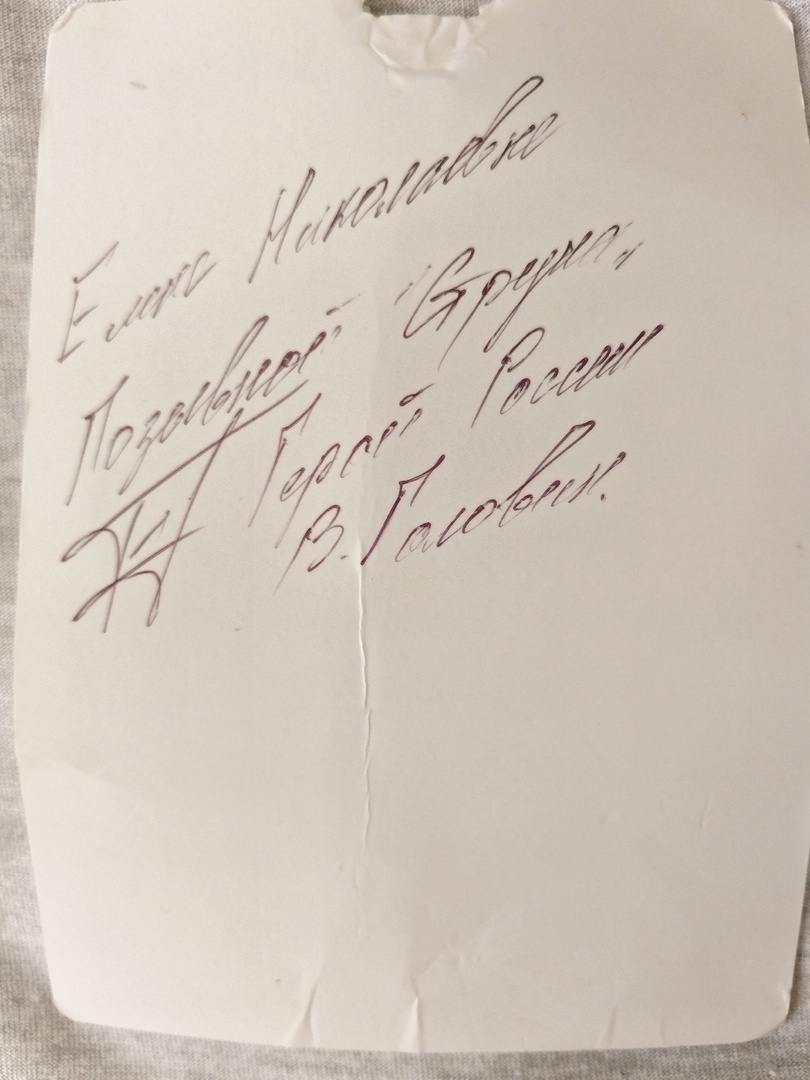 Елене Николаевне
Позывной "Струна"
Герой России
В. Головин.